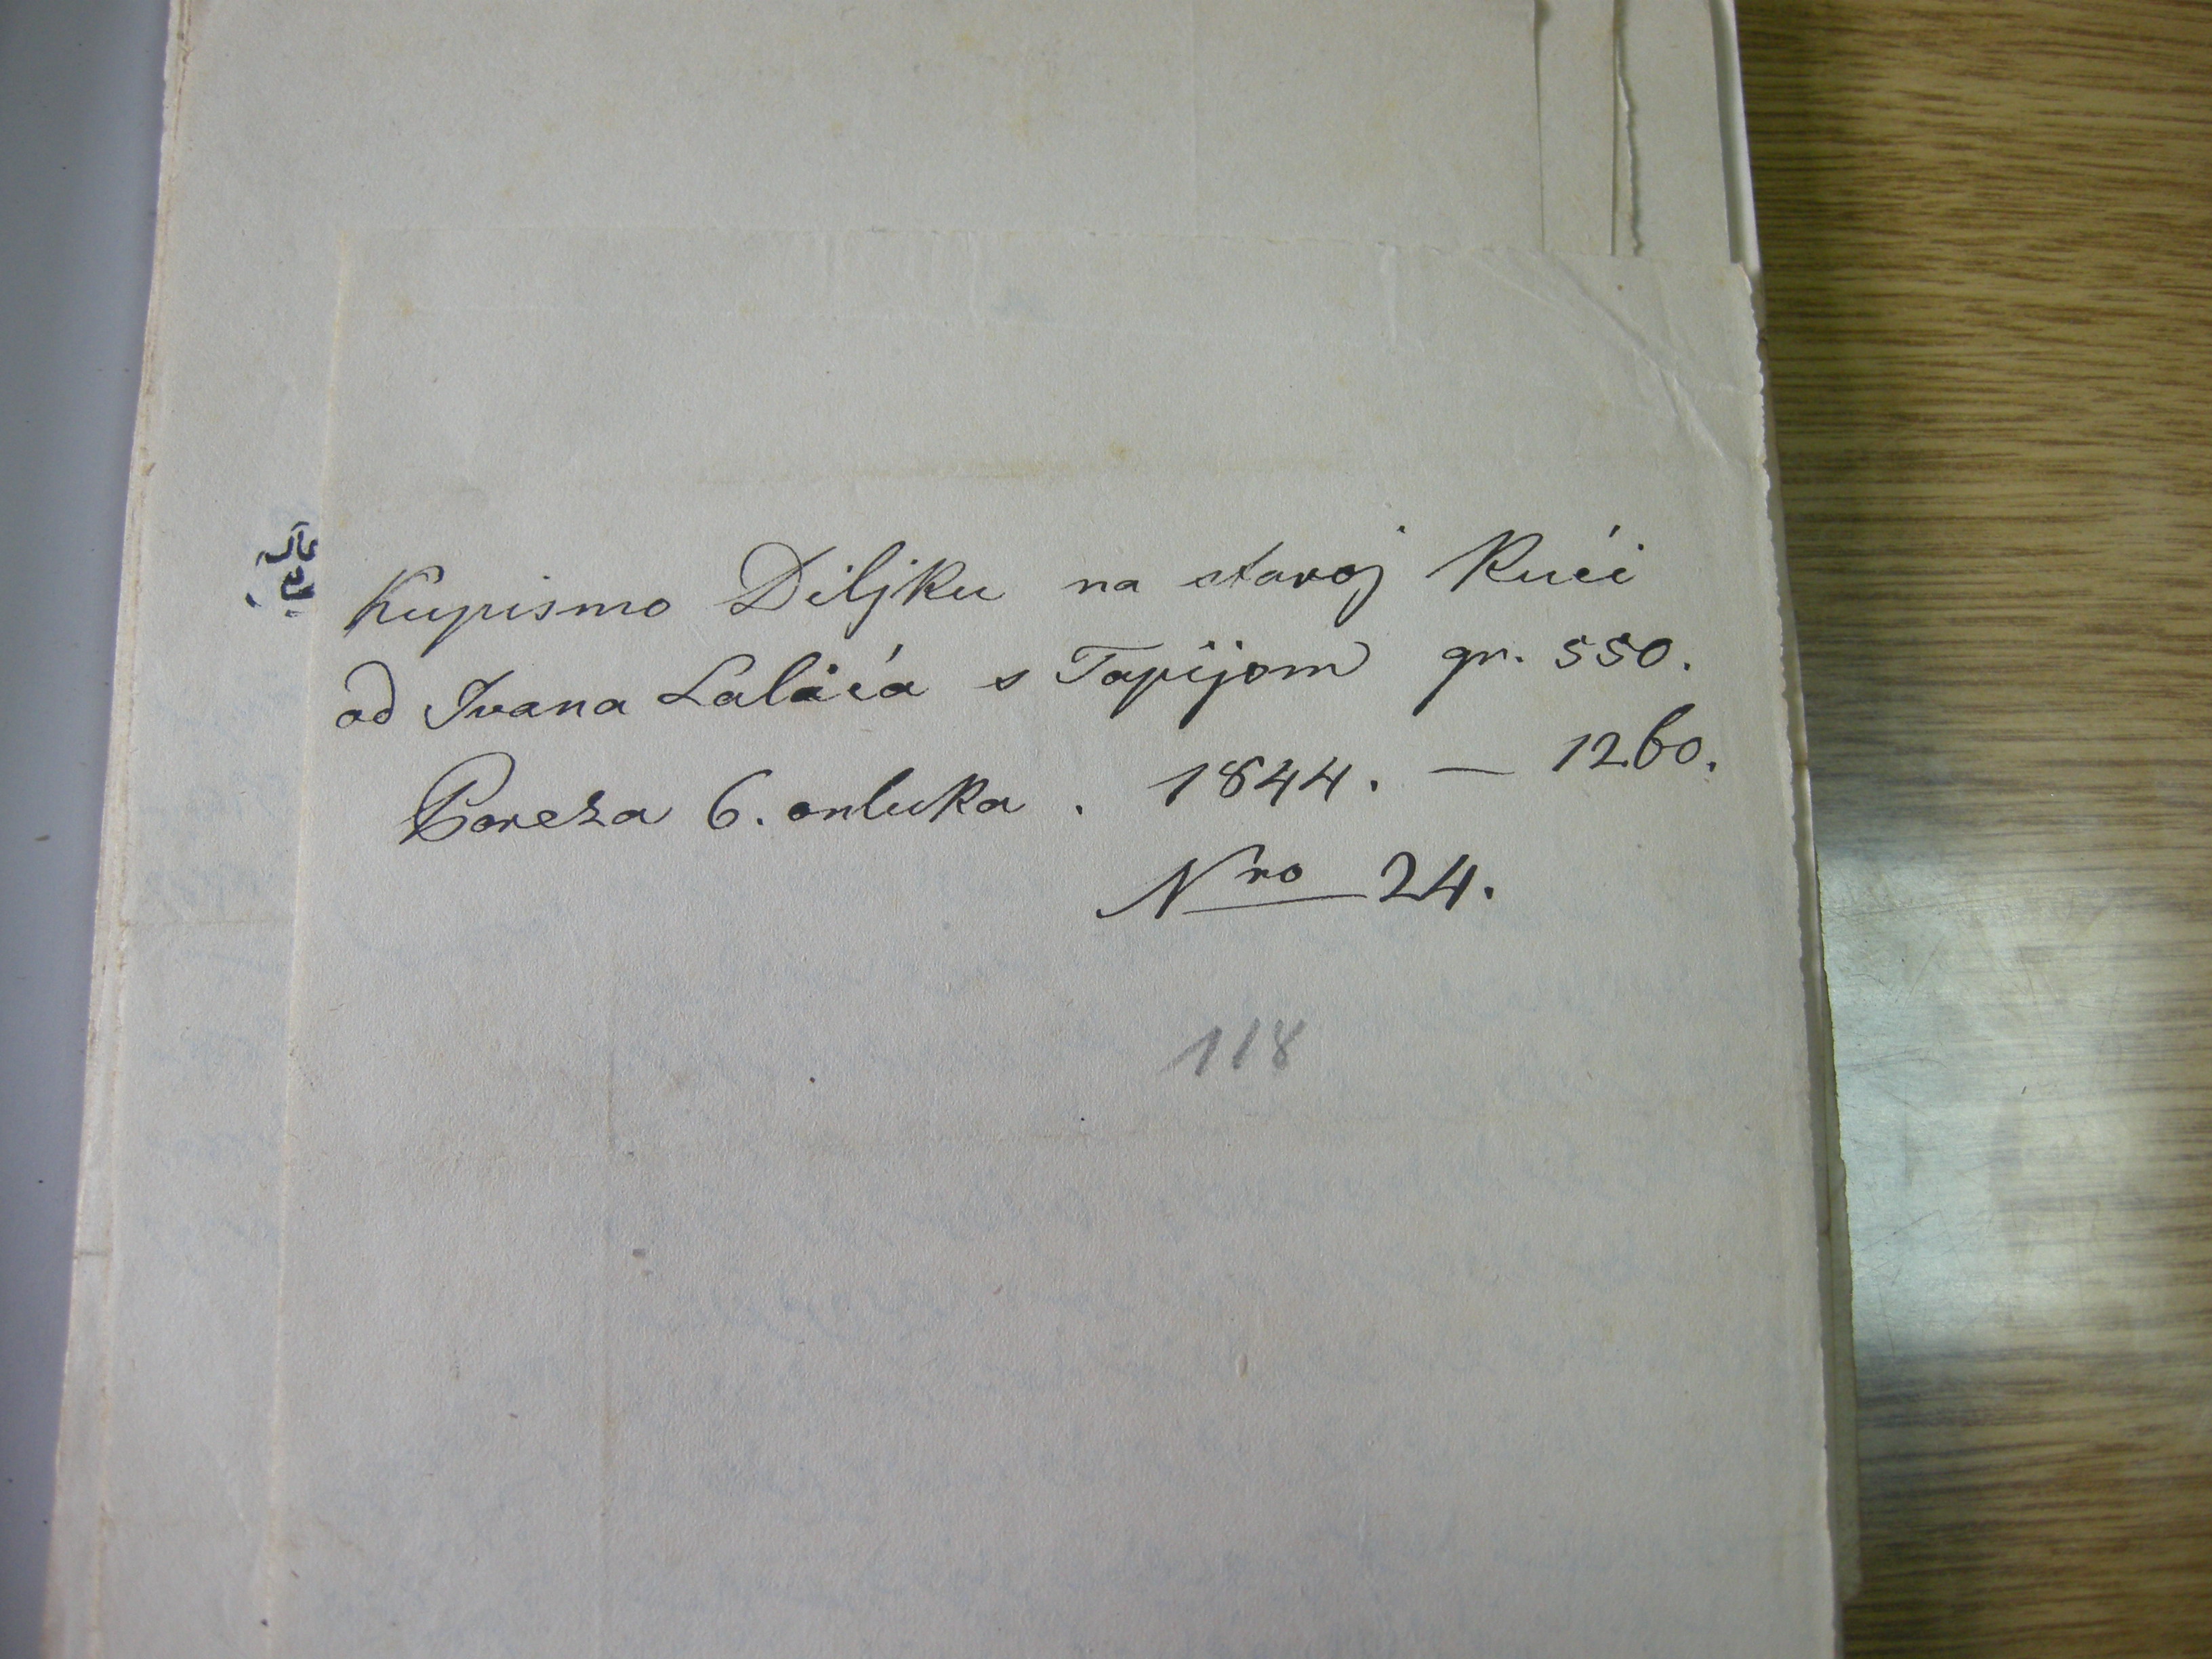 Kupismo Diljku na staroj Kući
od Ivana Lalića s Tapijom gr. 550.
Poreza 6. onluka. 1844. — 1260.
Nro 24.
118